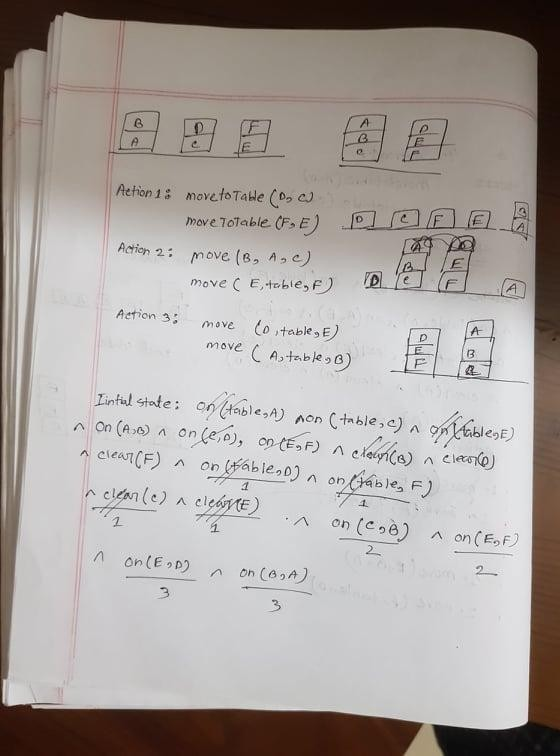 B D F A D
A C E B E
C F
Action 1: movetoTable (D, C)
moveToTable (F, E) D C F E B
A
Action 2: move (B, A, C) A
B E
move ( E, table, F) D C F A
Action 3: move (D, table, E) D A
move ( A, table, B) E B
F
Iintial state: on(table, A) ∧ on (table, C) ∧ on(table, E)
∧ on (A, B) ∧ on (C, D), on (E, F) ∧ clear(B) ∧ clear(D)
∧ clear(F) ∧ on (table, D) ∧ on (table, F)
1 1
∧ clear (C) ∧ clear(E) ∧ on (C, B) ∧ on(E, F)
1 1 2 2
∧ on(E, D) ∧ on (B, A)
3 3